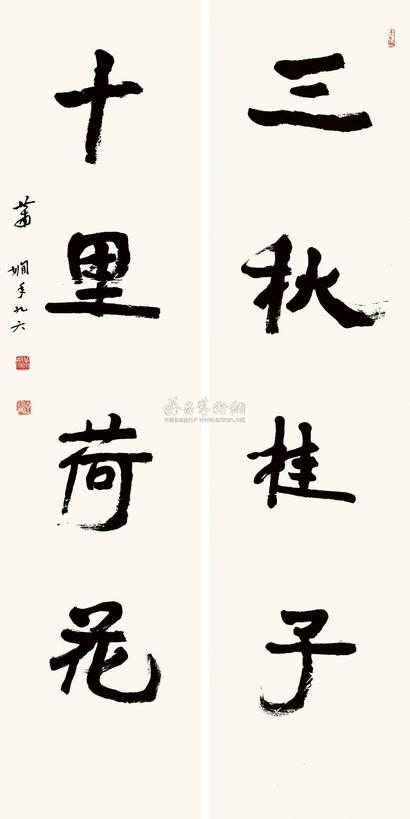 三秋桂子
十里荷花
萧娴年九六
雅昌藝術網
www.artron.net